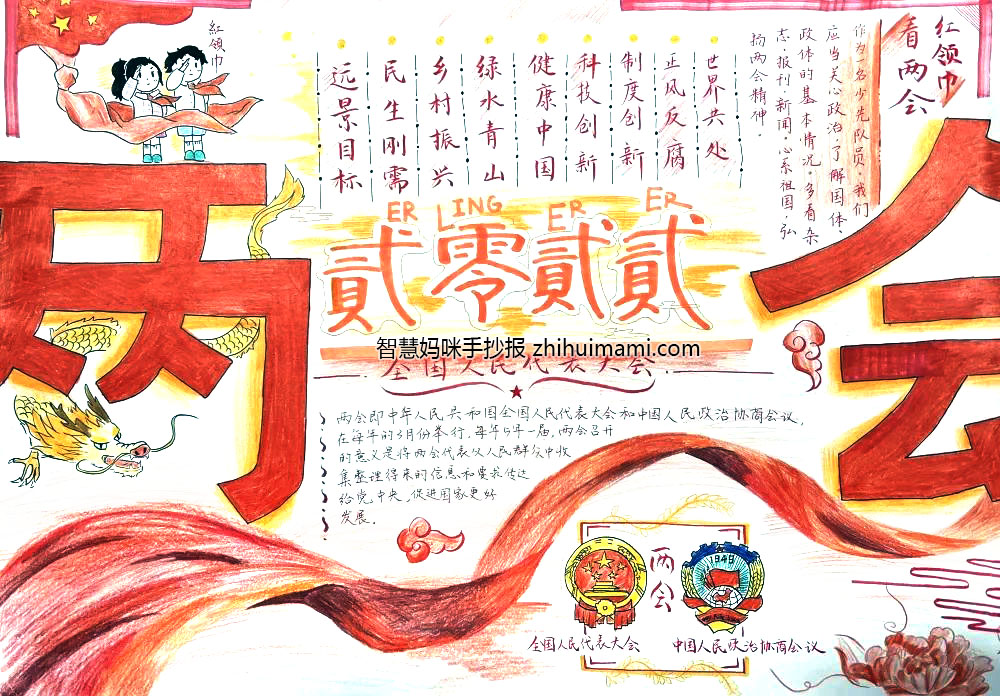 紅领巾
红领巾
看两会
作为一名少先队员,我们
应当关心政治,了解国体、
政体的基本情况。多看杂
志、报刊、新闻,心系祖国,弘
扬两会精神。
远景目标
民生刚需
乡村振兴
绿水青山
健康中国
科技创新
制度创新
正风反腐
世界共处
两会
ER LING ER ER
貳零貳貳
智慧妈咪手抄报 zhihuimami.com
全国人民代表大会
两会即中华人民共和国全国人民代表大会和中国人民政治协商会议,
在每年的3月份举行,每年5年一届,两会召开
的意义是将两会代表从人民群众中收
集整理得来的信息和要求传达
给党中央,促进国家更好
发展。
两会
1949
全国人民代表大会
中国人民政治协商会议